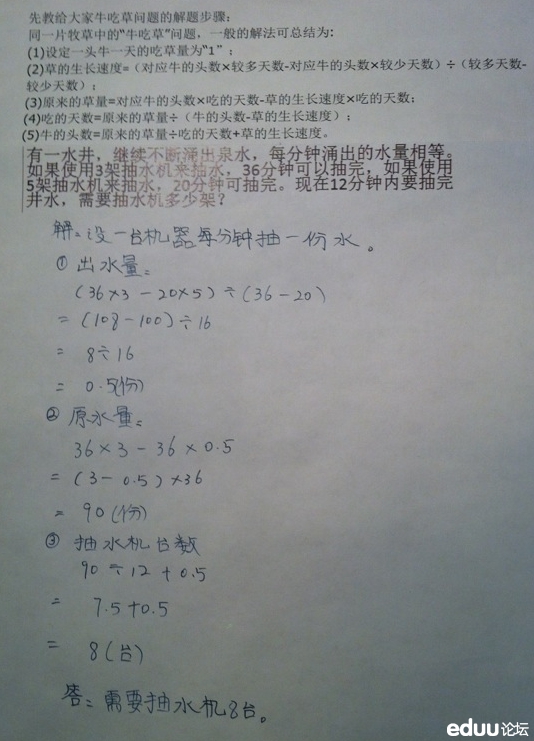 先教给大家牛吃草问题的解题步骤：
同一片牧草中的“牛吃草”问题，一般的解法可总结为：
(1)设定一头牛一天的吃草量为“1”；
(2)草的生长速度=（对应牛的头数×较多天数-对应牛的头数×较少天数）÷（较多天数-
较少天数）；
(3)原来的草量=对应牛的头数×吃的天数-草的生长速度×吃的天数；
(4)吃的天数=原来的草量÷（牛的头数-草的生长速度）；
(5)牛的头数=原来的草量÷吃的天数+草的生长速度。
有一水井，继续不断涌出泉水，每分钟涌出的水量相等。
如果使用3架抽水机来抽水，36分钟可以抽完，如果使用
5架抽水机来抽水，20分钟可抽完。现在12分钟内要抽完
井水，需要抽水机多少架？
解：设一台机器每分钟抽一份水。
① 出水量：
(36×3-20×5)÷(36-20)
=(108-100)÷16
= 8÷16
= 0.5(份)
② 原水量：
36×3-36×0.5
=(3-0.5)×36
= 90(份)
③ 抽水机台数
90÷12+0.5
= 7.5+0.5
= 8(台)
答：需要抽水机8台。
eduu论坛